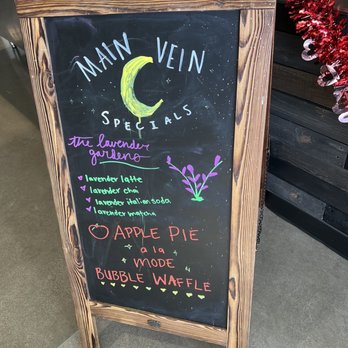 MAIN VEIN
SPECIALS
the lavender
gardens
lavender latte
lavender chai
lavender italian soda
lavender matcha
APPLE PIE
a la
MODE
BUBBLE WAFFLE